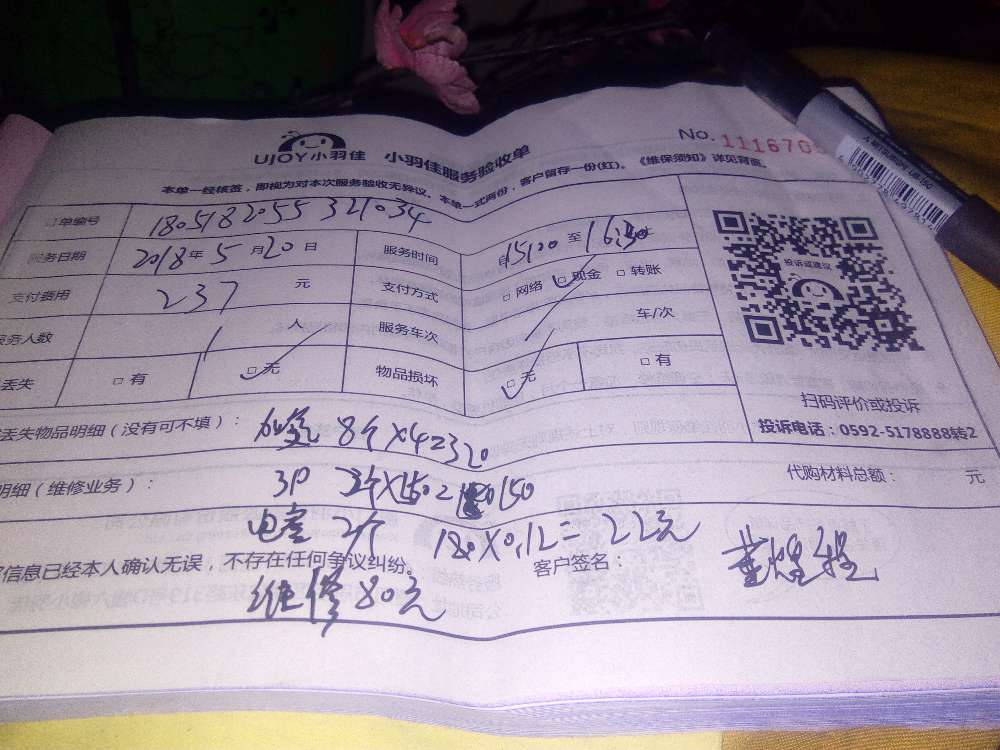 UJOY小羽佳 小羽佳服务验收单 No. 111670
本单一经核签，即视为对本次服务验收无异议。本单一式两份，客户留存一份(红)。《维保须知》详见背面。
订单编号 180518205532 1034
服务日期 2018年5月20日 服务时间 自15:00至16:30止
支付费用 237 元 支付方式 □网络 □现金 □转账
服务人数 1 人 服务车次 车/次
丢失 □有 □无 物品损坏 □无 □有
投诉或建议
扫码评价或投诉
投诉电话：0592-5178888转2
丢失物品明细（没有可不填）： 加氢 8个×4=320
明细（维修业务）： 3P 150 代购材料总额： 元
电容 2个 180×0.12=22元
信息已经本人确认无误，不存在任何争议纠纷。 客户签名：
维修80元